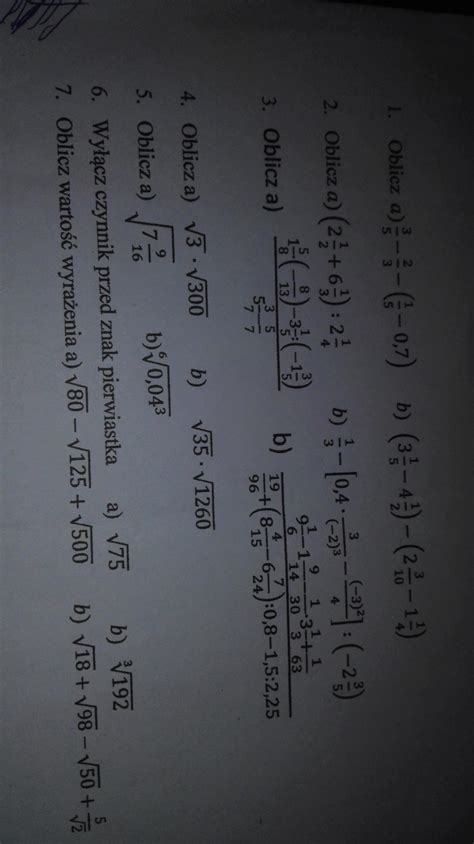 1. Oblicz a) 3/5 − 2/3 − (1/5 − 0,7) b) (3 1/5 − 4 1/2) − (2 3/10 − 1 1/4)
2. Oblicz a) (2 1/2 + 6 1/3) : 2 1/4 b) 1/3 − [0,4 · 3/(−2)³ − (−3)²/4] : (−2 3/5)
3. Oblicz a) (1 5/8(−8/13)−3 1/5:(−1 3/5))/(5 3/7−5/7) b) (9 1/6−1 9/14 − 1/30·3 1/3+1/63)/(19/96+(8 4/15−6 7/24):0,8−1,5:2,25)
4. Oblicz a) √3 · √300 b) √35 · √1260
5. Oblicz a) √(7 9/16) b) ⁶√0,04³
6. Wyłącz czynnik przed znak pierwiastka a) √75 b) ³√192
7. Oblicz wartość wyrażenia a) √80 − √125 + √500 b) √18 + √98 − √50 + 5/√2